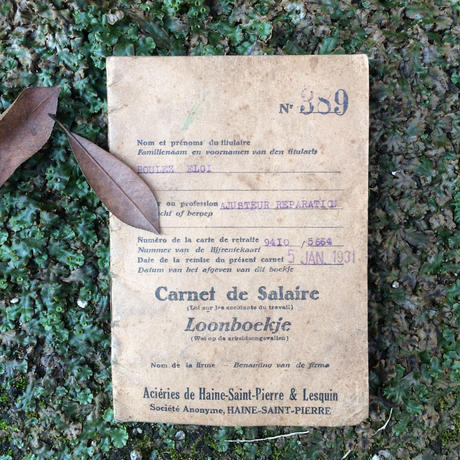 Nº 389
Nom et prénoms du titulaire
Familienaam en voornamen van den titularis
ROULEZ ELOI
ou profession AJUSTEUR REPARATION
of beroep
Numéro de la carte de retraite 9410 /5664
Nummer van de lijfrentekaart
Date de la remise du présent carnet 5 JAN. 1931
Datum van het afgeven van dit boekje
Carnet de Salaire
(Loi sur les accidents du travail)
Loonboekje
(Wet op de arbeidsongevallen)
Nom de la firme - Benaming van de firma
Aciéries de Haine-Saint-Pierre & Lesquin
Société Anonyme, HAINE-SAINT-PIERRE